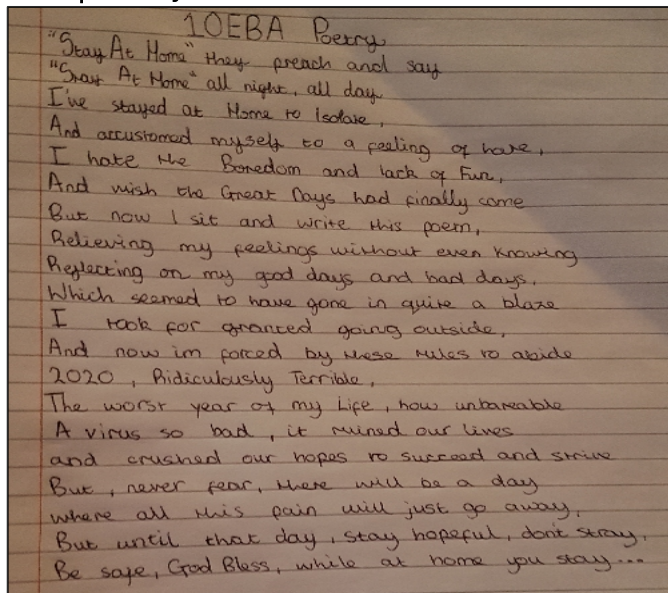 10EBA Poetry
"Stay At Home" they preach and say
"Stay At Home" all night, all day
I've stayed at Home to Isolate,
And accustomed myself to a feeling of hate,
I hate the Boredom and lack of Fun,
And wish the Great Days had finally come
But now I sit and write this poem,
Relieving my feelings without even knowing
Reflecting on my good days and bad days,
Which seemed to have gone in quite a blaze
I took for granted going outside,
And now im forced by these rules to abide
2020, Ridiculously Terrible,
The worst year of my Life, how unbareable
A virus so bad, it ruined our lives
and crushed our hopes to succeed and strive
But, never fear, there will be a day
where all this pain will just go away,
But until that day, stay hopeful, don't stray,
Be safe, God Bless, while at home you stay...